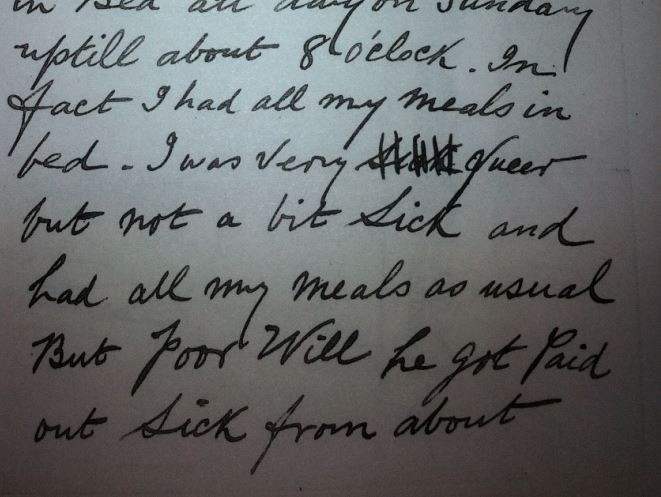 in Bed all day on Sunday
uptill about 8 o'clock. In
fact I had all my meals in
bed. I was very queer
but not a bit sick and
had all my meals as usual
But Poor Will he got Paid
out Sick from about